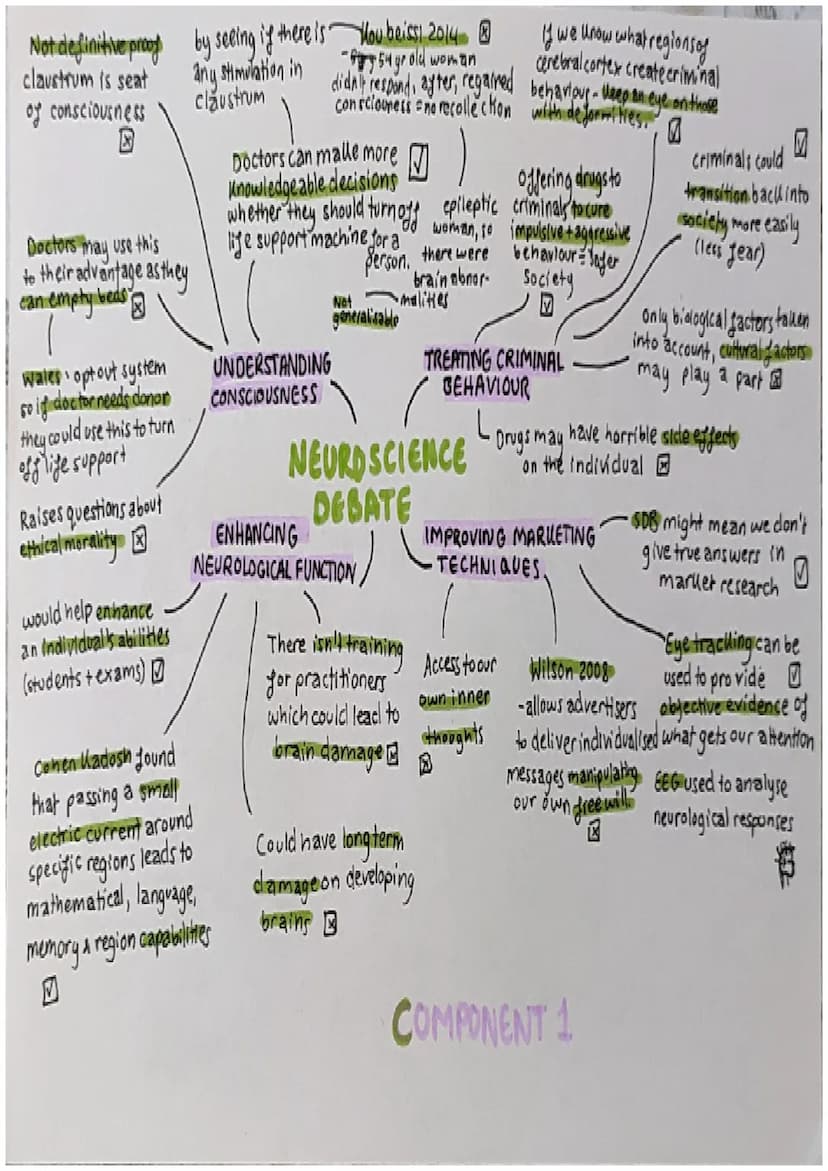 Not definitive proof
claustrum is seat
of consciousness
by seeing if there is
any stimulation in
claustrum
Koubeissi 2014
54 yr old woman
didn't respond, after, regained
consciousness = no recollection
If we know what regions of
cerebral cortex create criminal
behaviour - keep an eye on those
with deformities.
Doctors can make more
knowledgeable decisions
whether they should turn off
life support machine for a
person.
epileptic
woman, so
there were
brain abnor-
malities
Not
generalisable
offering drugs to
criminals to cure
impulsive + aggressive
behaviour = safer
society
criminals could
transition back into
society more easily
(less fear)
Doctors may use this
to their advantage as they
can empty beds
Wales - opt out system
so if doctor needs donor
they could use this to turn
off life support
Raises questions about
ethical morality
UNDERSTANDING
CONSCIOUSNESS
TREATING CRIMINAL
BEHAVIOUR
Only biological factors taken
into account, cultural factors
may play a part
Drugs may have horrible side effects
on the individual
NEUROSCIENCE
DEBATE
ENHANCING
NEUROLOGICAL FUNCTION
IMPROVING MARKETING
TECHNIQUES
SDB might mean we don't
give true answers in
market research
would help enhance
an individual's abilities
(students + exams)
There isn't training
for practitioners
which could lead to
brain damage
Access to our
own inner
thoughts
Wilson 2008
-allows advertisers
to deliver individualised
messages manipulating
our own free will
Eye tracking can be
used to provide
objective evidence of
what gets our attention
EEG used to analyse
neurological responses
Cohen Kadosh found
that passing a small
electric current around
specific regions leads to
mathematical, language,
memory & region capabilities
Could have long term
damage on developing
brains
COMPONENT 1